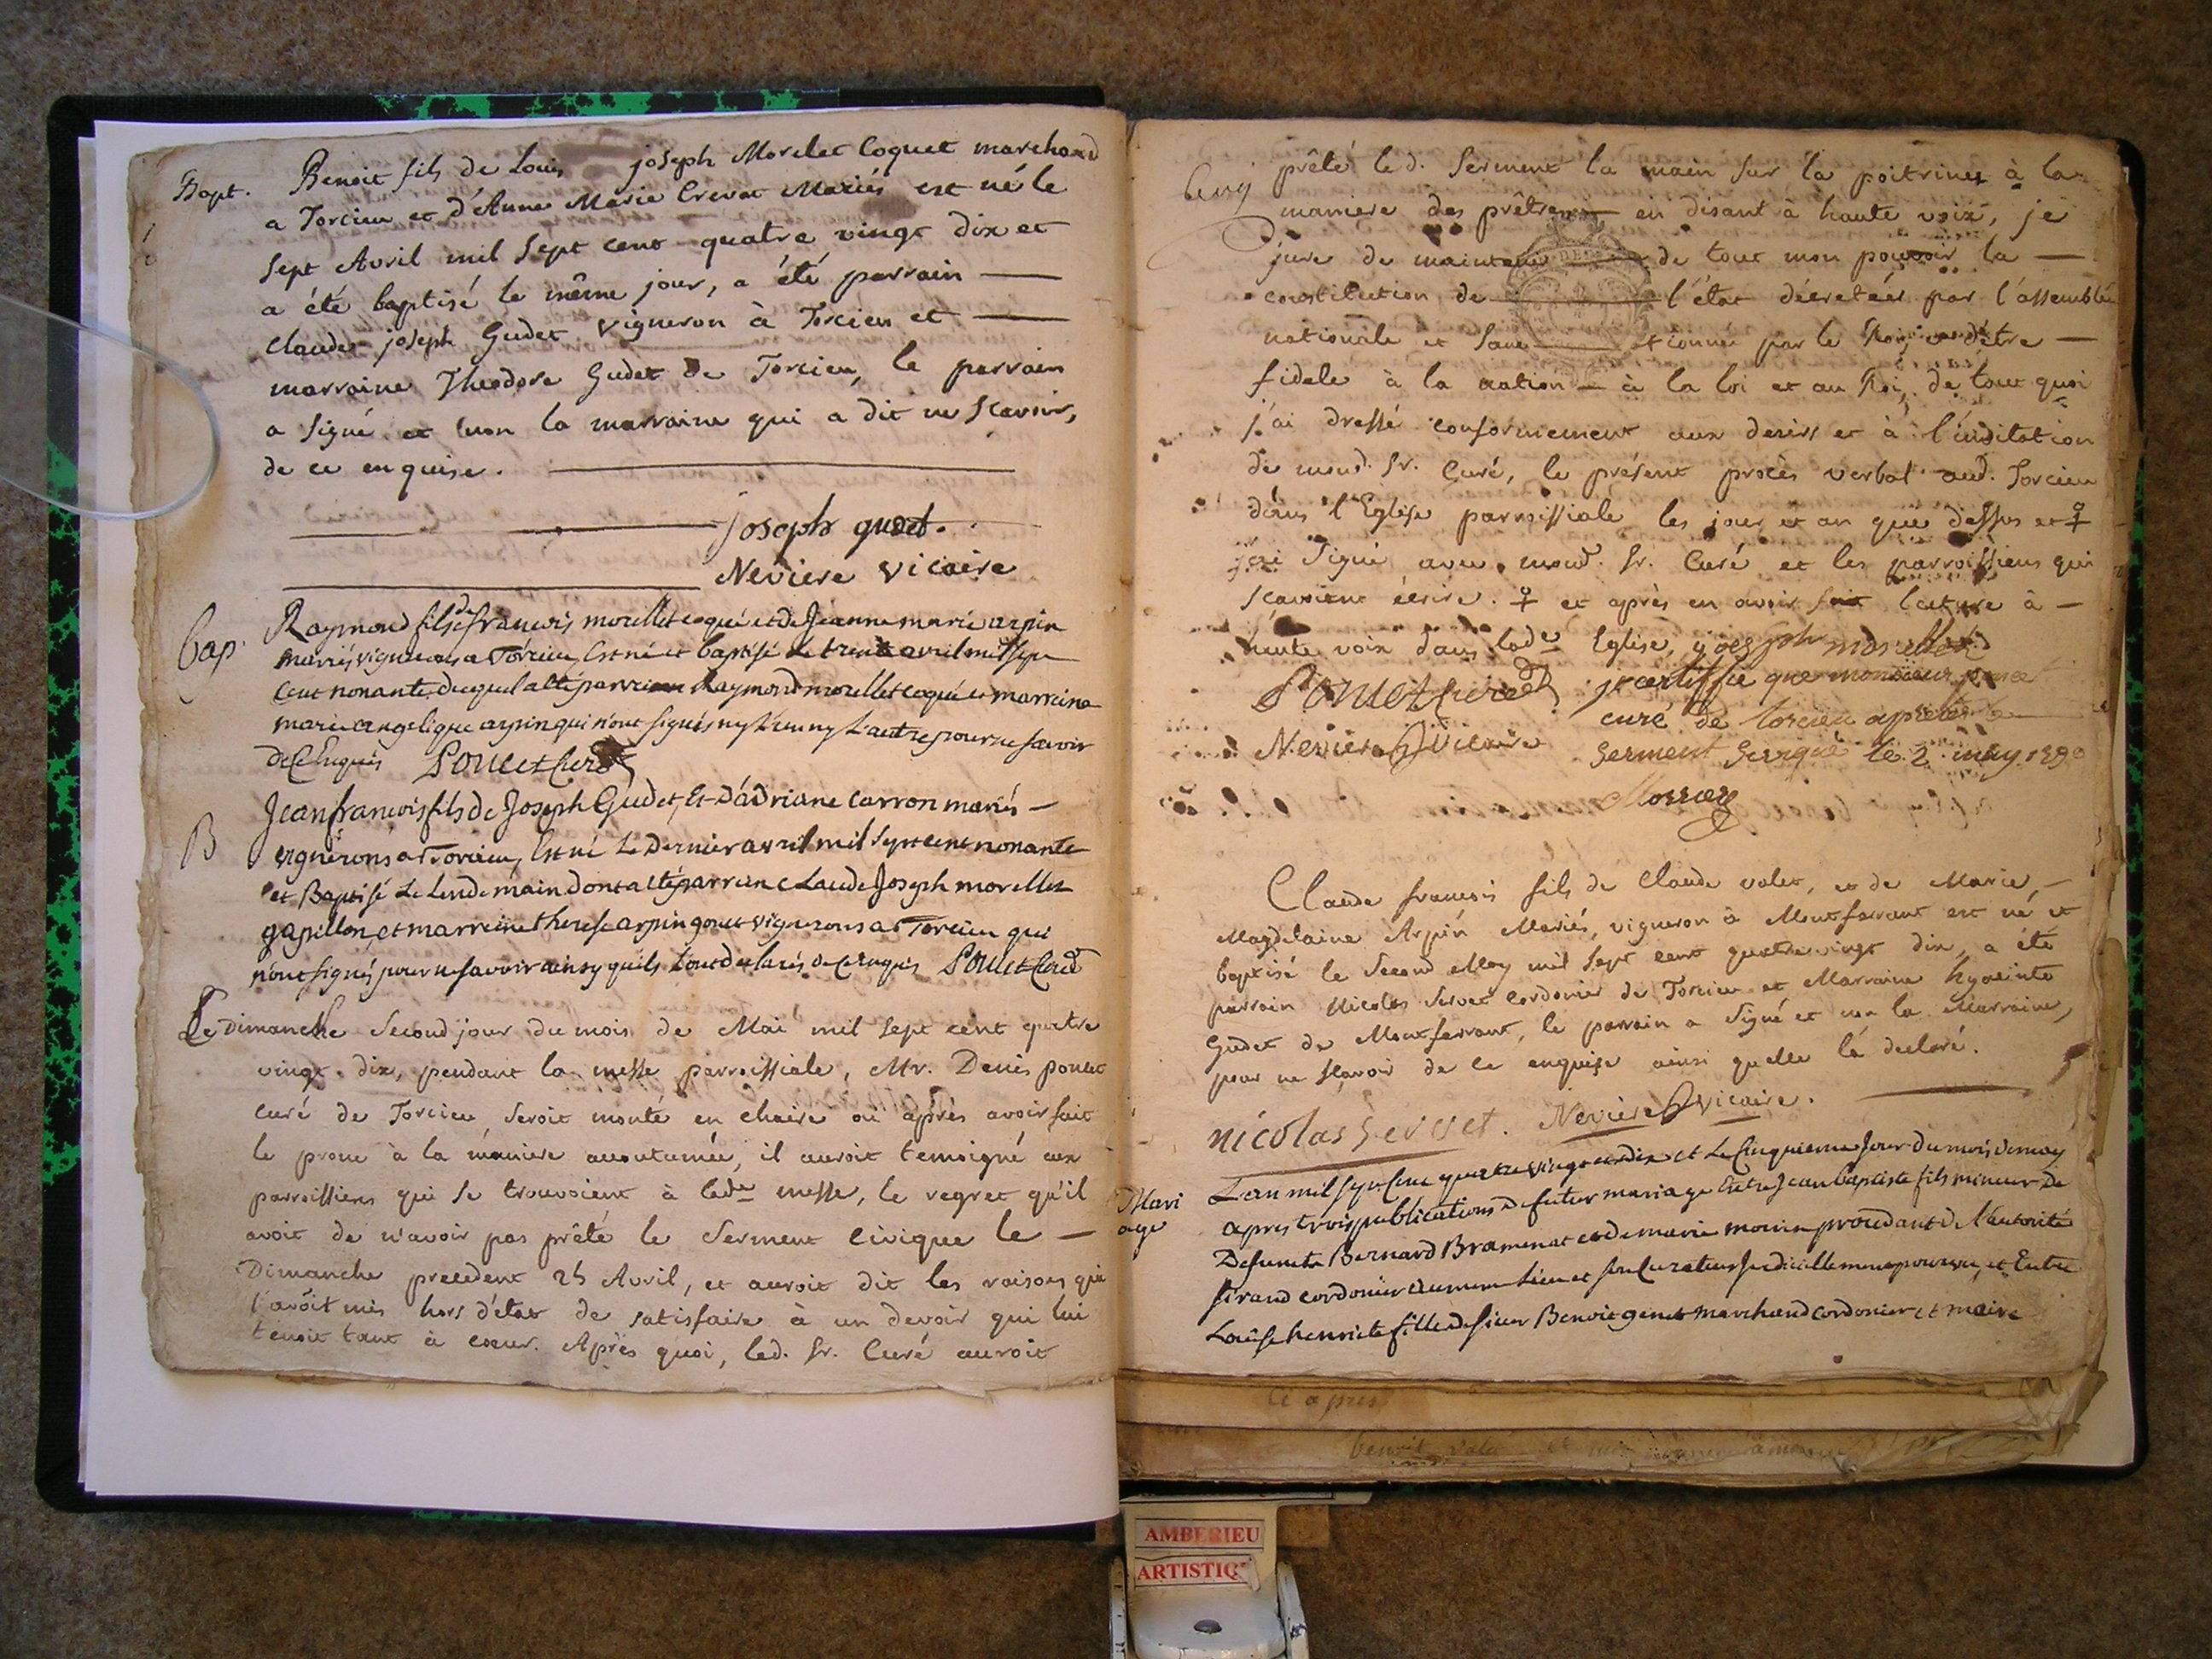 Bapt. Benoit fils de Louis joseph Morelet Coquet marchand
a Torcieu et d'Anne Marie Crevat Mariés est né le
sept Avril mil sept cent quatre vingt dix et
a été baptisé le même jour, a été parrain
Claude joseph Gudet vigneron à Torcieu et
marraine Theodore Gudet de Torcieu, le parrain
a signé et non la marraine qui a dit ne scavoir,
de ce enquise.
joseph gudet.
Neviere vicaire
bap. Raymond fils de francois morellet coqué et de Jeanne marie arpin
mariés vignerons a Torcieu, Est né et baptisé le trente avril mil sept
Cent nonante, duquel a été parrein Raymond morellet coqué et marreine
marie angelique arpin qui n'ont signés ny L'un ny L'autre pour ne savoir
de ce Enquis Poncet Curé
B Jean francois fils de Joseph Gudet, Et D'adriane Carron mariés
vignerons a Torcieu, Est né Le Dernier avril mil Sept cent nonante
et Baptisé Le Lendemain dont a été parrein Claude Joseph morellet
gapillon, et marreine therese arpin gonet vignerons a Torcieu qui
n'ont signés pour ne savoir ainsy qu'ils L'ont declarés de ce Enquis Poncet Curé
Le Dimanche Second jour du mois de Mai mil sept cent quatre
vingt dix, pendant la messe parroissiale, Mr. Denis poncet
curé de Torcieu seroit monté en chaire où après avoir fait
le prone à la maniere accoutumée, il auroit temoigné aux
parroissiens qui se trouvoient à lade messe, le regret qu'il
avoit de n'avoir pas prêté le Serment civique le
Dimanche precedent 25 Avril, et auroit dit les raisons qui
l'avoit mis hors d'état de satisfaire à un devoir qui lui
tenoit tant à coeur. Après quoi, led. Sr. Curé auroit
prêté led. Serment la main sur la poitrine à la
maniere des prêtres en disant à haute voix, je
jure de maintenir de tout mon pouvoir la
constitution de l'état décretées par l'assemblée
nationale et Sanctionnée par le Roi, d'être
fidele à la nation à la loi et au Roi, de tout quoi
j'ai dressé conformement aux desirs et à l'invitation
de mond. Sr. Curé, le présent procès verbal aud. Torcieu
dans l'Eglise parroissiale les jour et an que dessus et ♀
j'ai signé avec mond. Sr. Curé et les parroissiens qui
scavoient écrire. ♀ et après en avoir fait lecture à
haute voix dans lade Eglise, joesph morellet
Poncet Curé je certiffie que monsieur poncet
curé de torcieu a preté
Neviere Vicaire Serment le 2 may 1790
Claude francois fils de Claude valet, et de Marie
Magdelaine Arpin Mariés, vigneron à Montferrant est né et
baptisé le Second May mil Sept cent quatre vingt dix, a été
parrain Nicolas Servet Cordonier de Torcieu et Marraine hyacinte
Gudet de Montferrant, le parrain a signé et non la Marraine,
pour ne sçavoir de ce enquise ainsi quelle la declaré.
nicolas Servet. Neviere vicaire.
Mari
age
L'an mil sept Cent quatre vingt et dix et Le Cinquieme Jour du mois de may
apres trois publications de futur mariage Entre Jean baptiste fils mineur de
Defunct Bernard Bramenat et de marie procedant de l'autorité
cordonier au meme Lieu et son Curateur Judiciellement pourvu, et Entre
Louise henriete fille de sieur Benoit genet marchand cordonier et maire
ci apres
AMBERIEU
ARTISTIQ